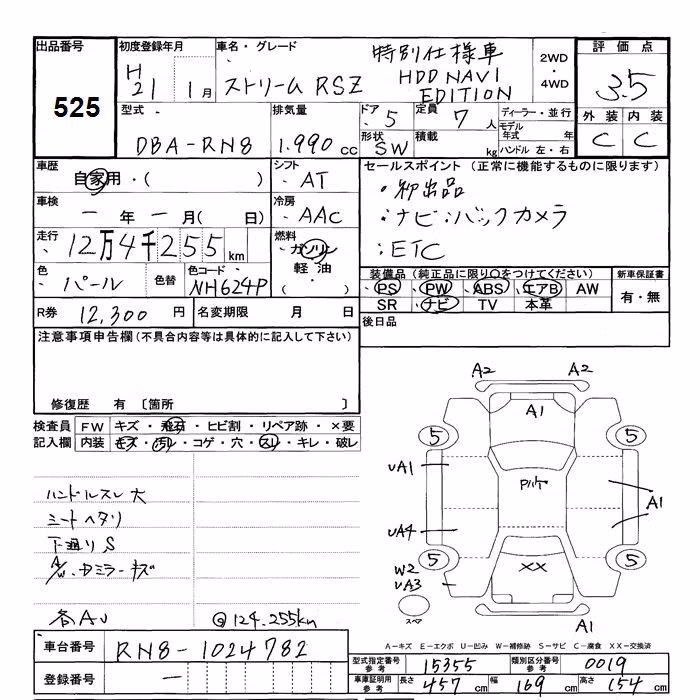 出品番号
525
初度登録年月
H21 1月
車名・グレード
ストリーム RSZ
特別仕様車
HDD NAVI
EDITION
2WD
・
4WD
評価点
3.5
外装 内装
C C
型式
DBA-RN8
排気量
1.990 cc
ドア 5
定員 7 人
ディーラー・並行
形状 SW
積載 kg
モデル年式 年
ハンドル 左・右
車歴
自家用・( )
シフト
AT
車検
ー 年 ー 月( 日)
冷房
AAC
走行
12万4千255 km
燃料
ガソリン
軽油
・
( )
色
パール
色替
色コード
NH624P
R券 12,300 円
名変期限 月 日
セールスポイント (正常に機能するものに限ります)
・初出品
・ナビ・バックカメラ
・ETC
装備品 (純正品に限り○をつけてください)
PS PW ABS エアB AW
SR ナビ TV 本革
新車保証書
有・無
後日品
注意事項申告欄(不具合内容等は具体的に記入して下さい)
修復歴 有 〔箇所 〕
検査員
記入欄
FW キズ・飛石・ヒビ割・リペア跡・×要
内装 キズ・汚レ・コゲ・穴・スレ・キレ・破レ
ハンドルスレ大
シートヘタリ
下廻りS
A/W・ドミラーキズ
各AU
@124.255km
A2 A2
A1
5 5
UA1
A1
UA4
5 5
W2
UA3
XX
スペア
A1
A-キズ E-エクボ U-凹み W-補修跡 S-サビ C-腐食 XX-交換済
車台番号 RN8-1024782
登録番号 ー
型式指定番号
参考
15355
類別区分番号
参考
0019
車庫証明用
参考
長さ 457 cm 幅 169 cm 高さ 154 cm